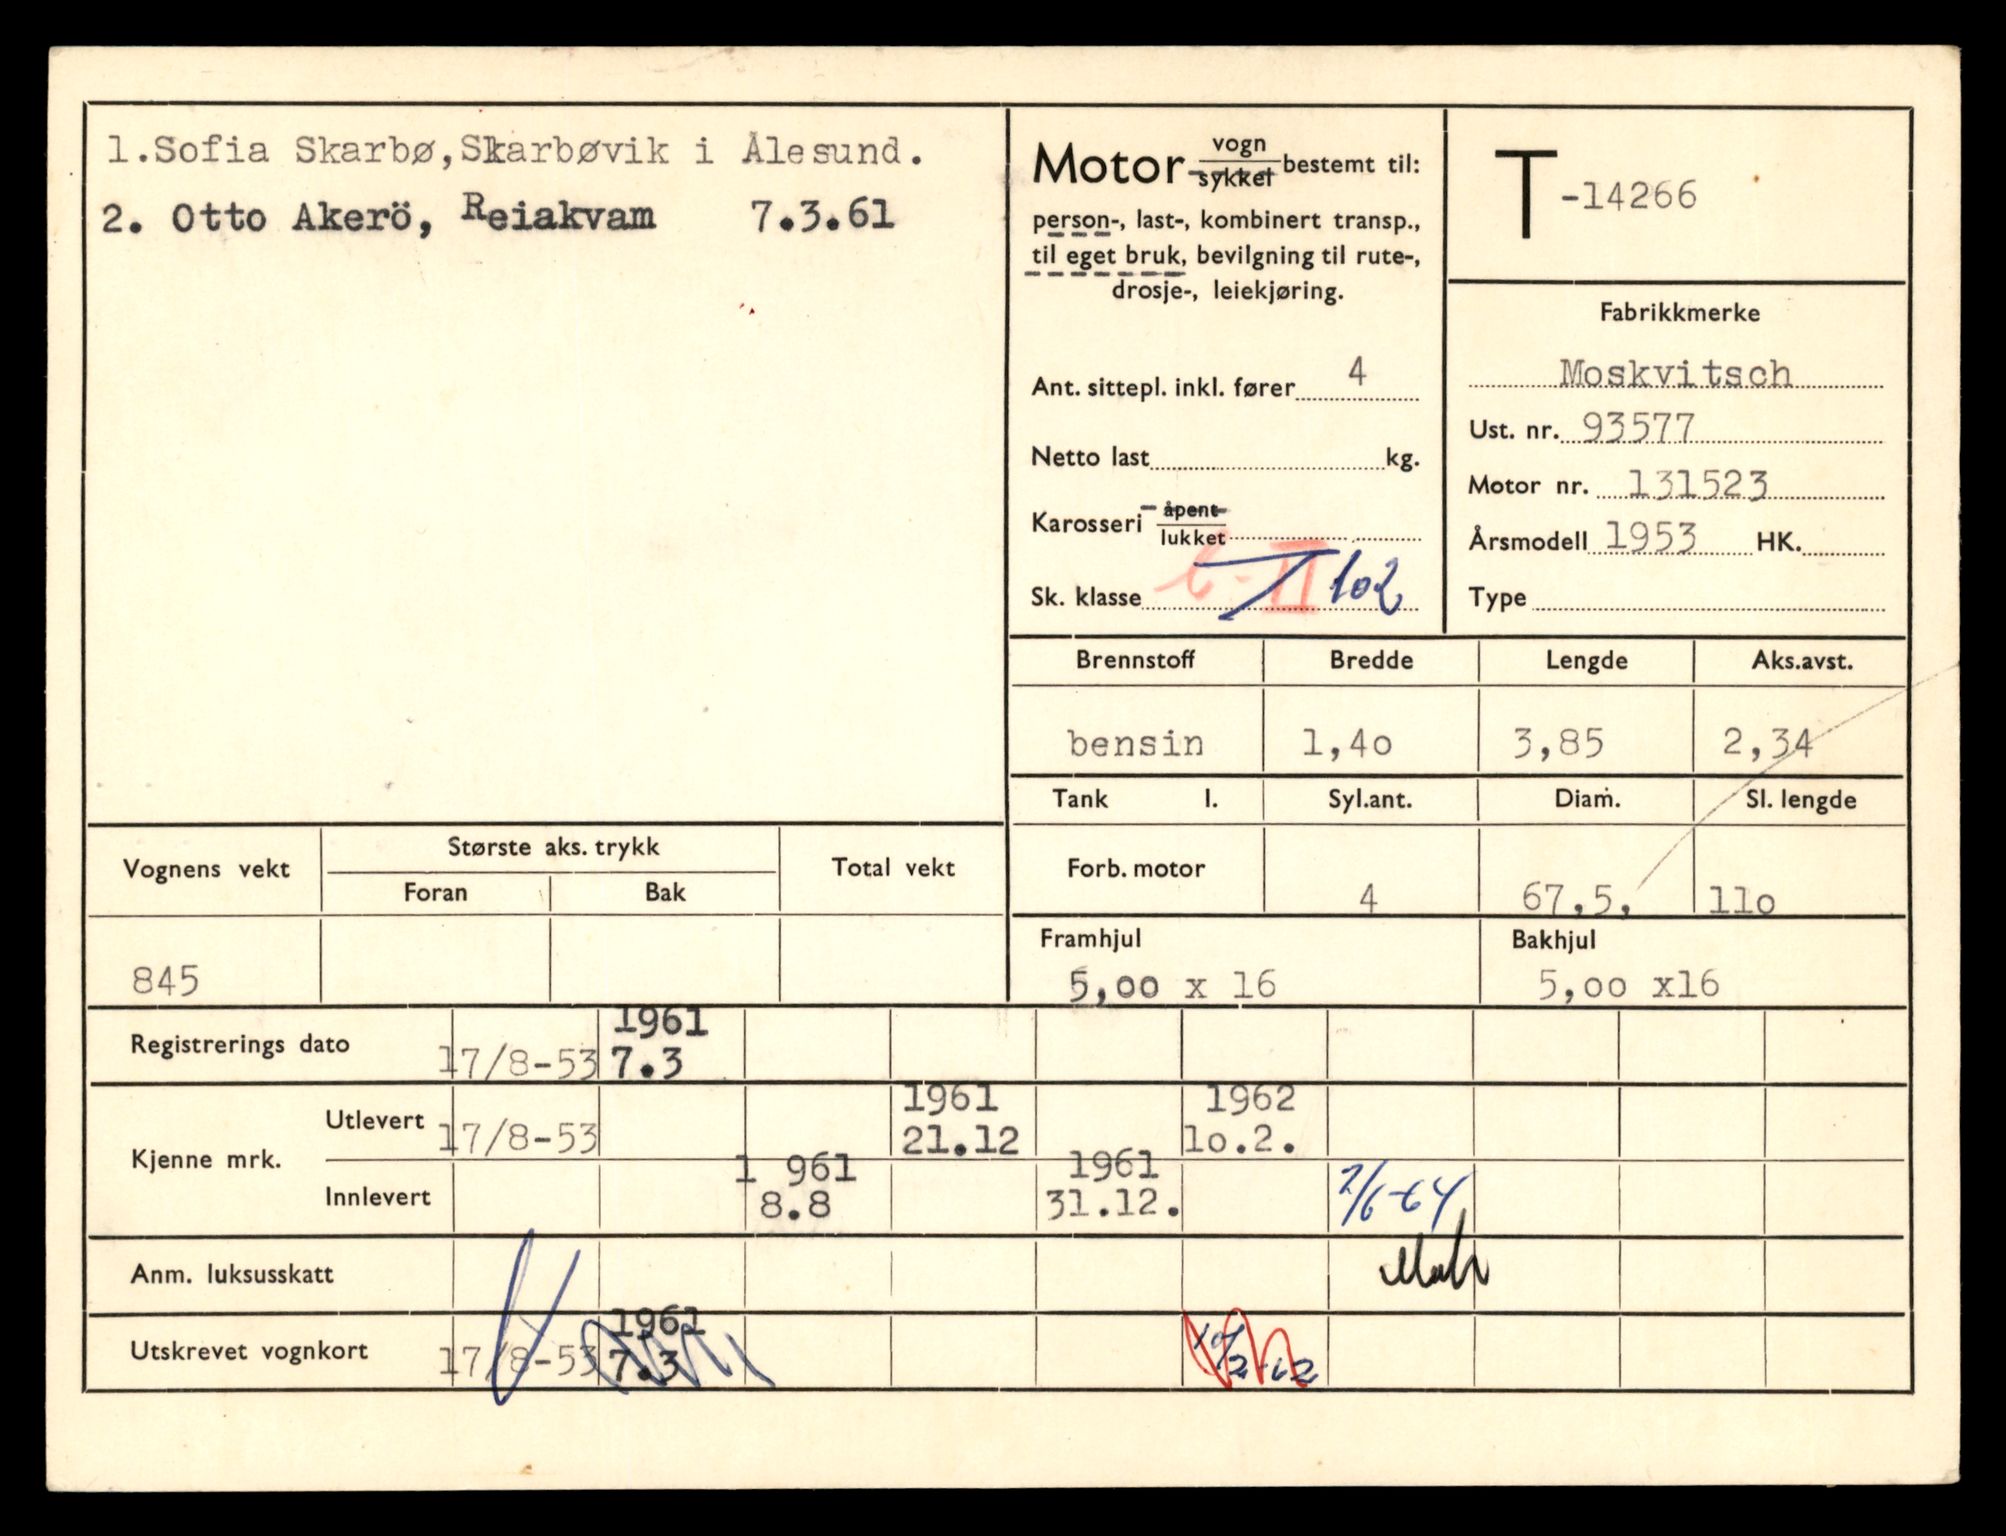 1.Sofia Skarbø,Skarbøvik i Ålesund.
2. Otto Akerö, Reiakvam 7.3.61
Motor- vogn
sykkel bestemt til:
person-, last-, kombinert transp.,
til eget bruk, bevilgning til rute-,
drosje-, leiekjøring.
Ant. sittepl. inkl. fører 4
Netto last kg.
Karosseri åpent
lukket
Sk. klasse 102
T -14266
Fabrikkmerke
Moskvitsch
Ust. nr. 93577
Motor nr. 131523
Årsmodell 1953 HK.
Type
Brennstoff Bredde Lengde Aks.avst.
bensin 1,40 3,85 2,34
Tank l. Syl.ant. Diam. Sl. lengde
Forb. motor 4 67,5, 110
Framhjul Bakhjul
5,00 x 16 5,00 x16
Vognens vekt Største aks. trykk Total vekt
Foran Bak
845
Registrerings dato 17/8-53 1961
7.3
Kjenne mrk. Utlevert 17/8-53 1961
21.12 1962
10.2.
Innlevert 1 961
8.8 1961
31.12. 2/6-64
Anm. luksusskatt
Utskrevet vognkort 17/8-53 1961
7.3 10/2-62